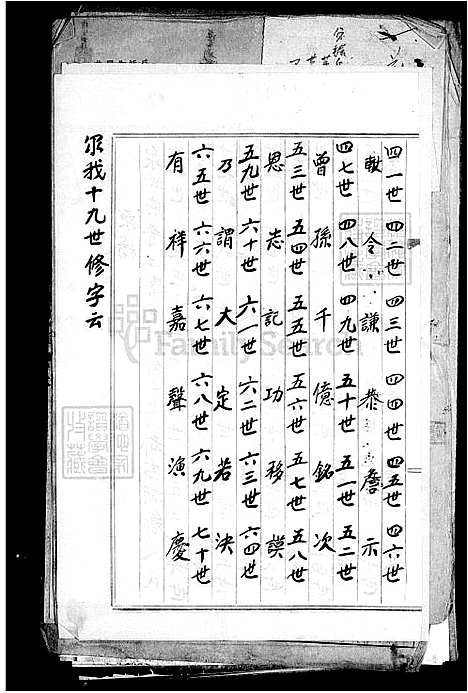 四一世 四二世 四三世 四四世 四五世 四六世
敦 令 謙 恭 詹 示
四七世 四八世 四九世 五十世 五一世 五二世
曾 孫 千 億 銘 次
五三世 五四世 五五世 五六世 五七世 五八世
恩 志 記 功 移 謨
五九世 六十世 六一世 六二世 六三世 六四世
乃 謂 大 定 若 決
六五世 六六世 六七世 六八世 六九世 七十世
有 祥 嘉 聲 演 慶
我十九世修字云
FamilySearch